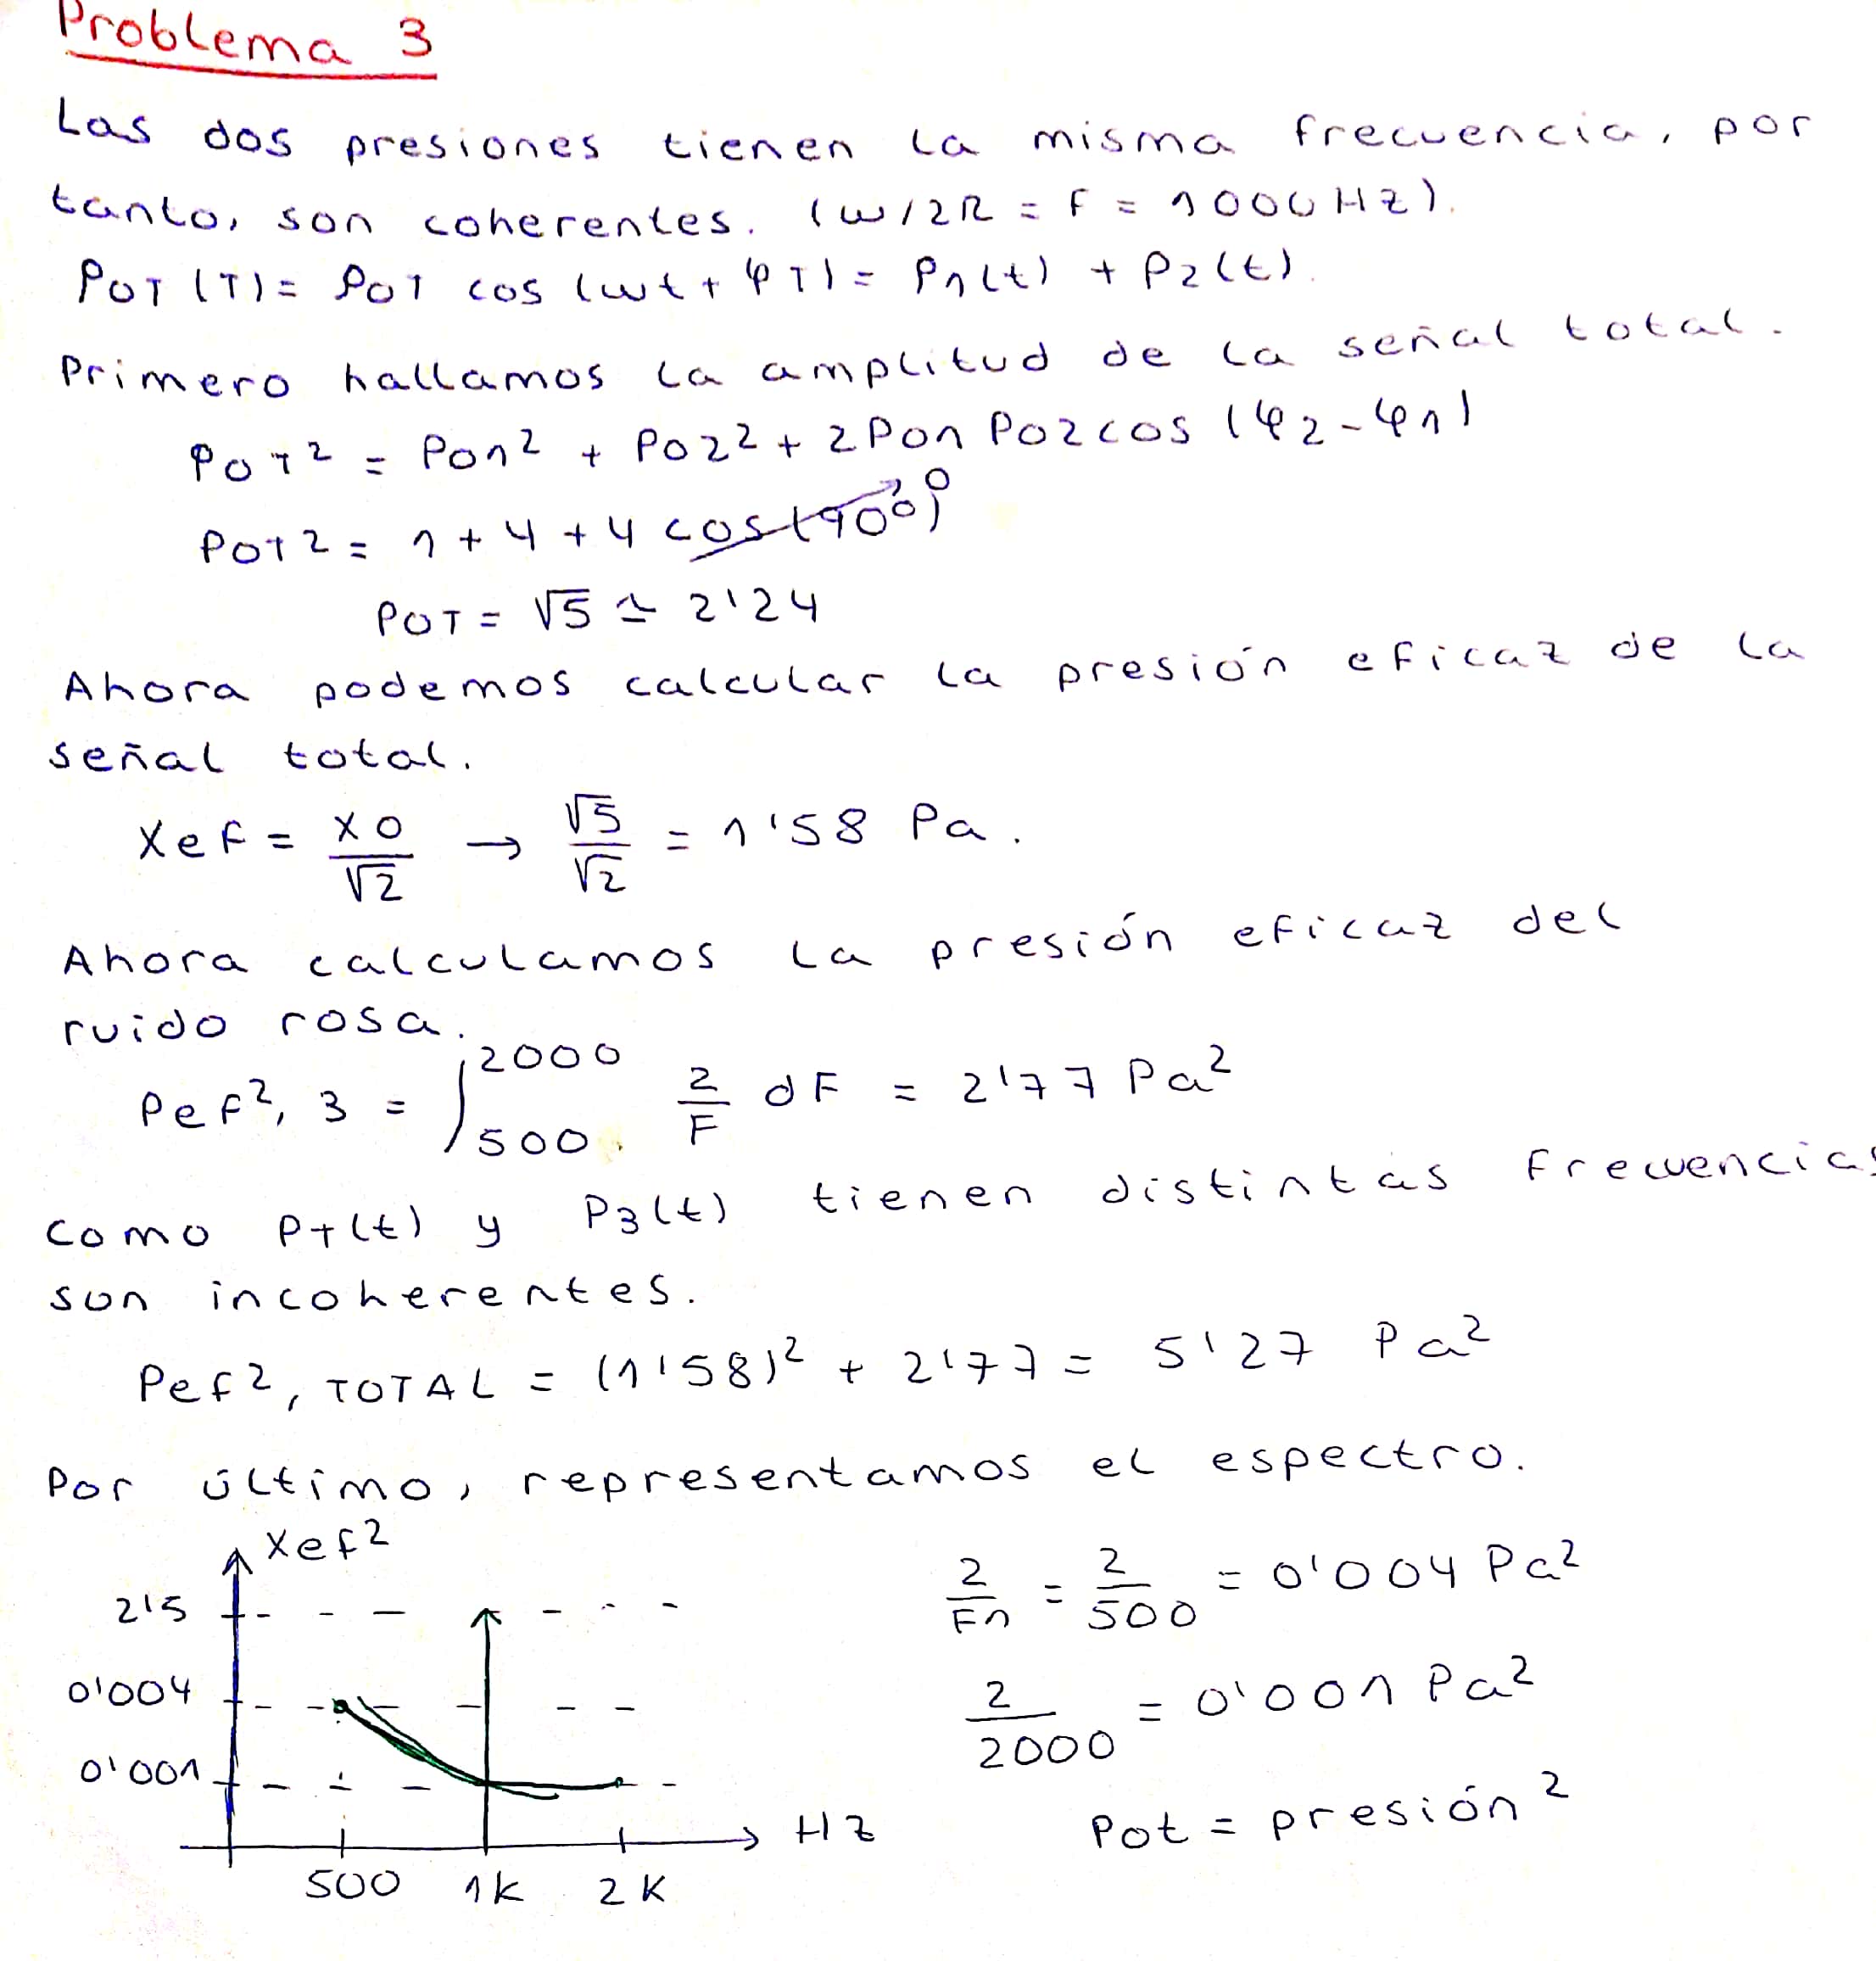 Problema 3
Las dos presiones tienen la misma frecuencia, por
tanto, son coherentes. (w/2π = f = 1000Hz).
POT (T) = POT cos (wt + φT) = P1(t) + P2(t).
Primero hallamos la amplitud de la señal total.
POT² = P01² + P02² + 2P01 P02 cos (φ2-φ1)
POT² = 1 + 4 + 4 cos(90°) 0
POT = √5 ≃ 2'24
Ahora podemos calcular la presión eficaz de la
señal total.
Xef = X0/√2 → √5/√2 = 1'58 Pa.
Ahora calculamos la presión eficaz del
ruido rosa.
Pef², 3 = ∫500 2000 2/F dF = 2'77 Pa²
como PT(t) y P3(t) tienen distintas frecuencias
son incoherentes.
Pef², TOTAL = (1'58)² + 2'77 = 5'27 Pa²
Por último, representamos el espectro.
Xef²
2'5
0'004
0'001
500 1K 2K
HZ
2/F1 = 2/500 = 0'004 Pa²
2/2000 = 0'001 Pa²
Pot = presión²